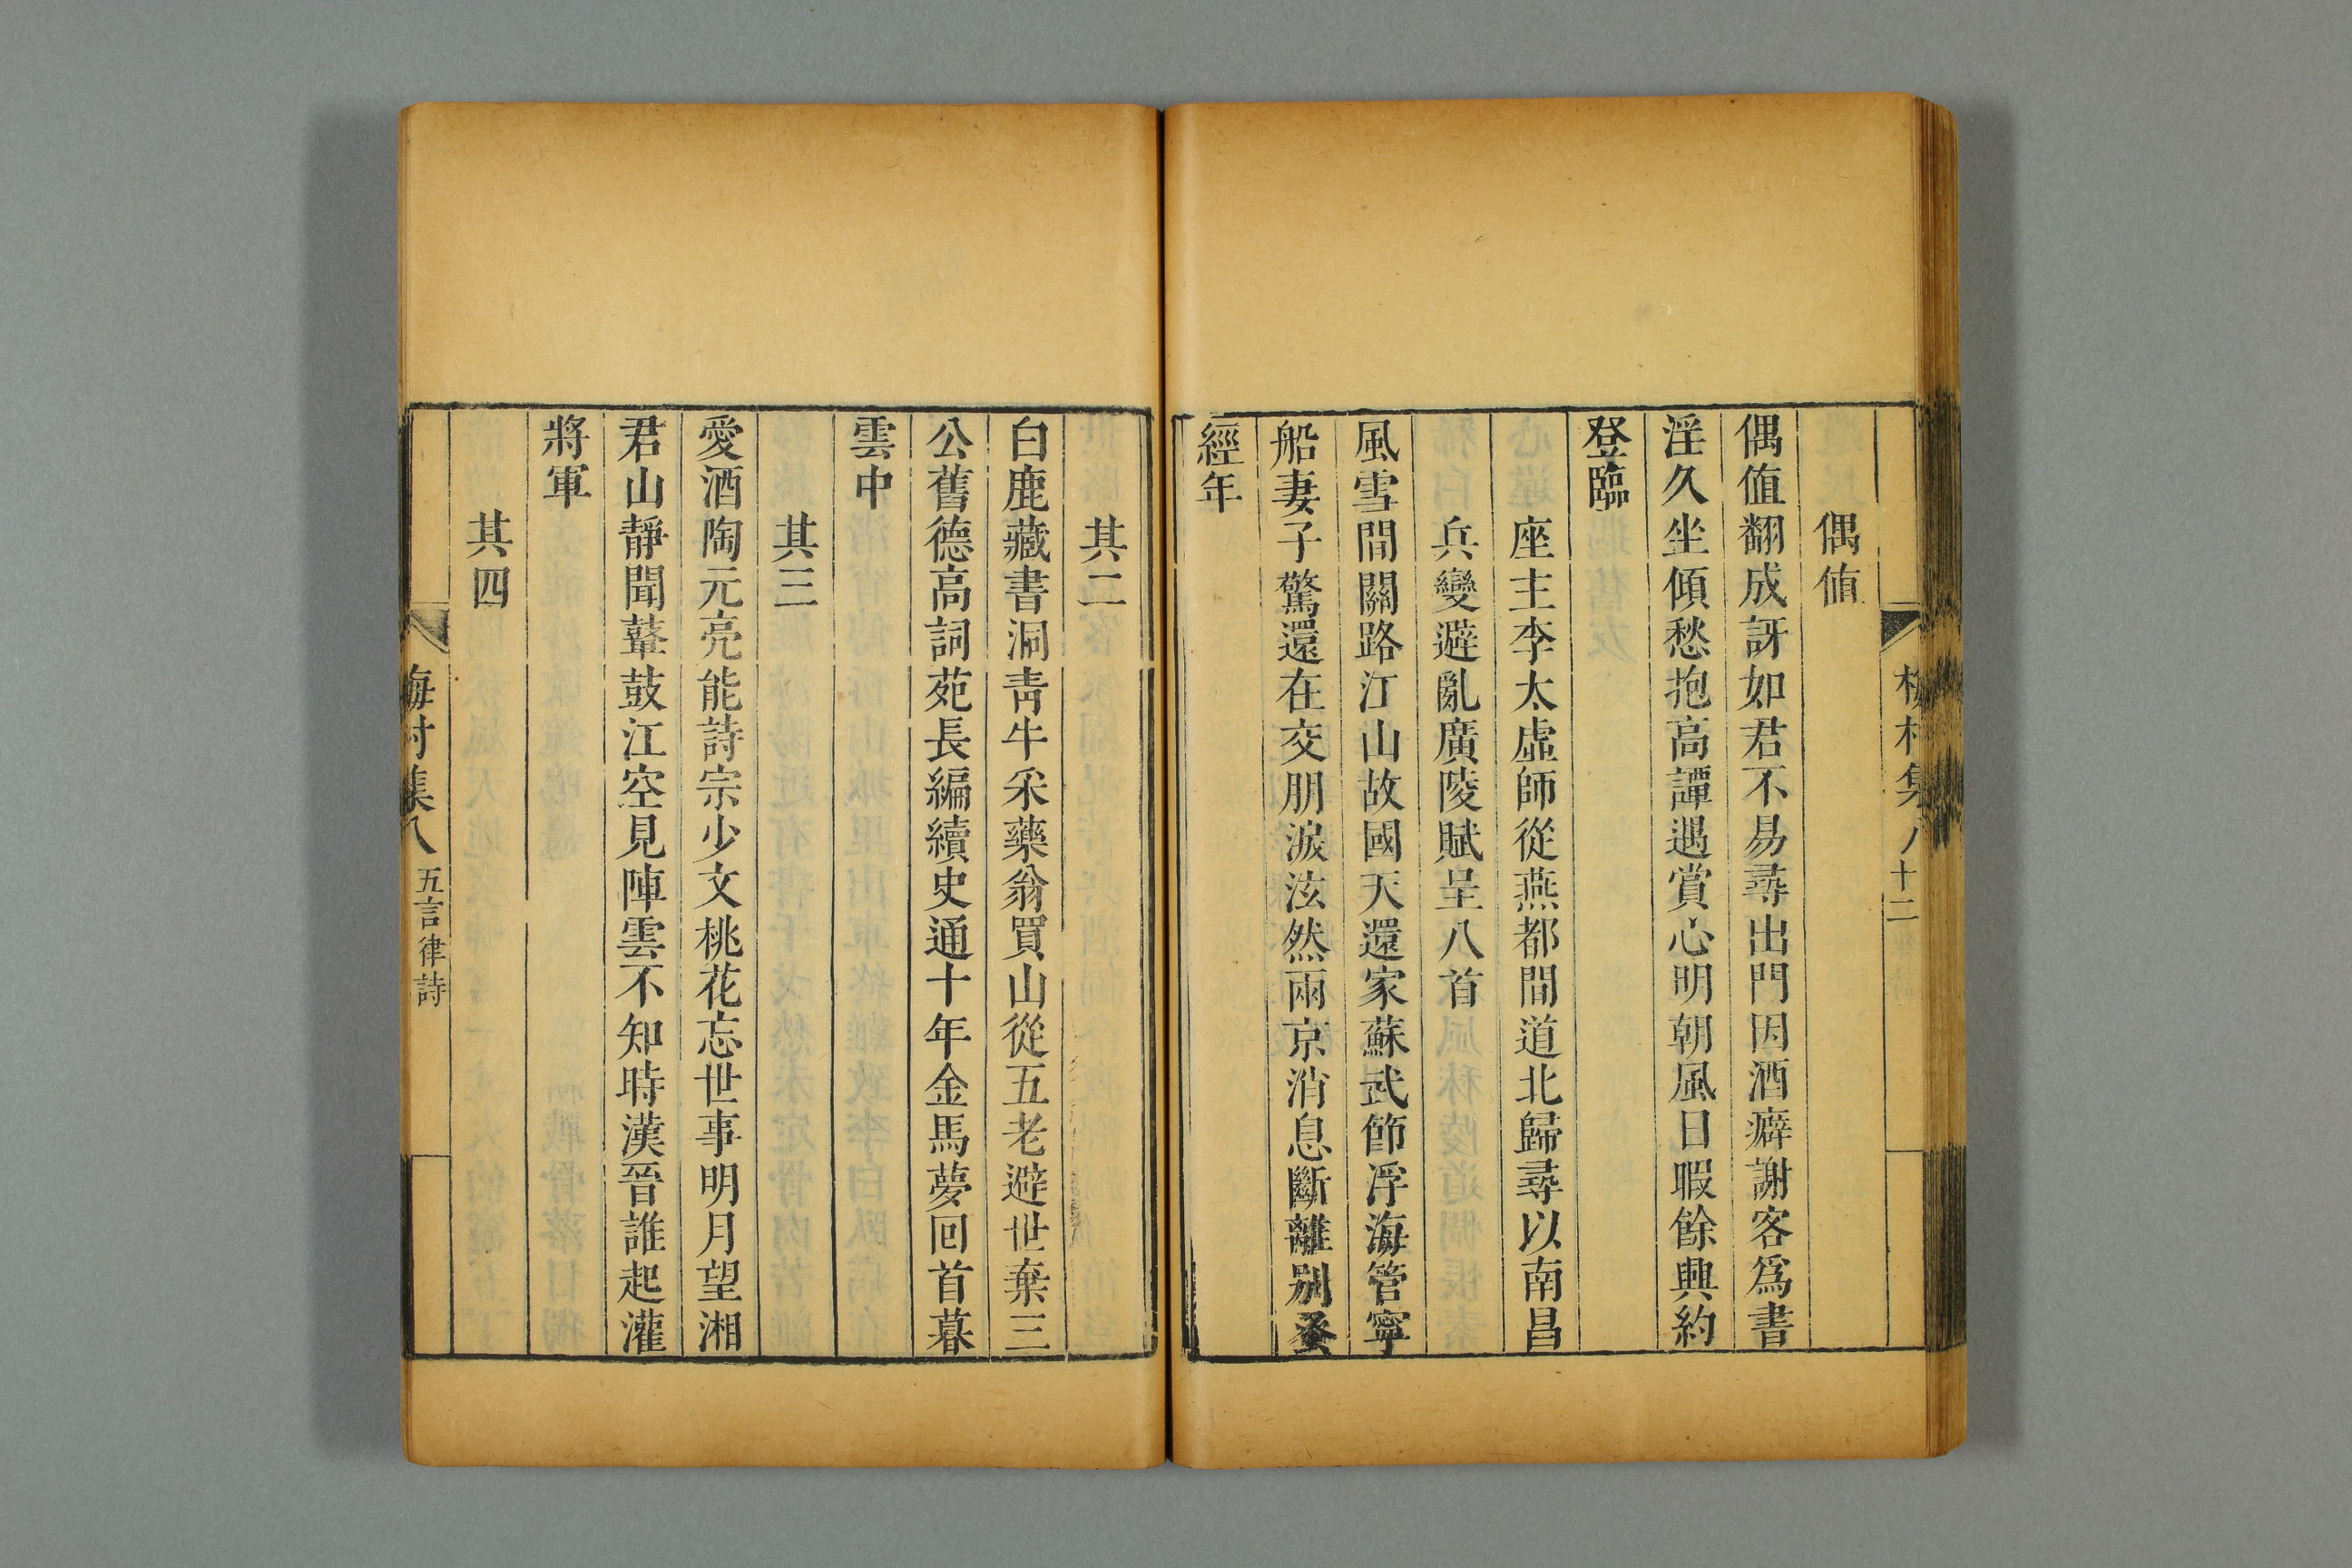 梅村集 八 十二
偶値
偶値翻成訝如君不易尋出門因酒癖謝客爲書
淫久坐傾愁抱高譚遇賞心明朝風日暇餘興約
登臨
座主李太虛師從燕都間道北歸尋以南昌
兵變避亂廣陵賦呈八首
風雪間關路江山故國天還家蘇武節浮海管寧
船妻子驚還在交朋淚泫然兩京消息斷離別
經年
其二
白鹿藏書洞靑牛采藥翁買山從五老避世棄三
公舊德高詞苑長編續史通十年金馬夢回首暮
雲中
其三
愛酒陶元亮能詩宗少文桃花忘世事明月望湘
君山靜聞鼙鼓江空見陣雲不知時漢晉誰起灌
將軍
其四
梅村集 八 五言律詩